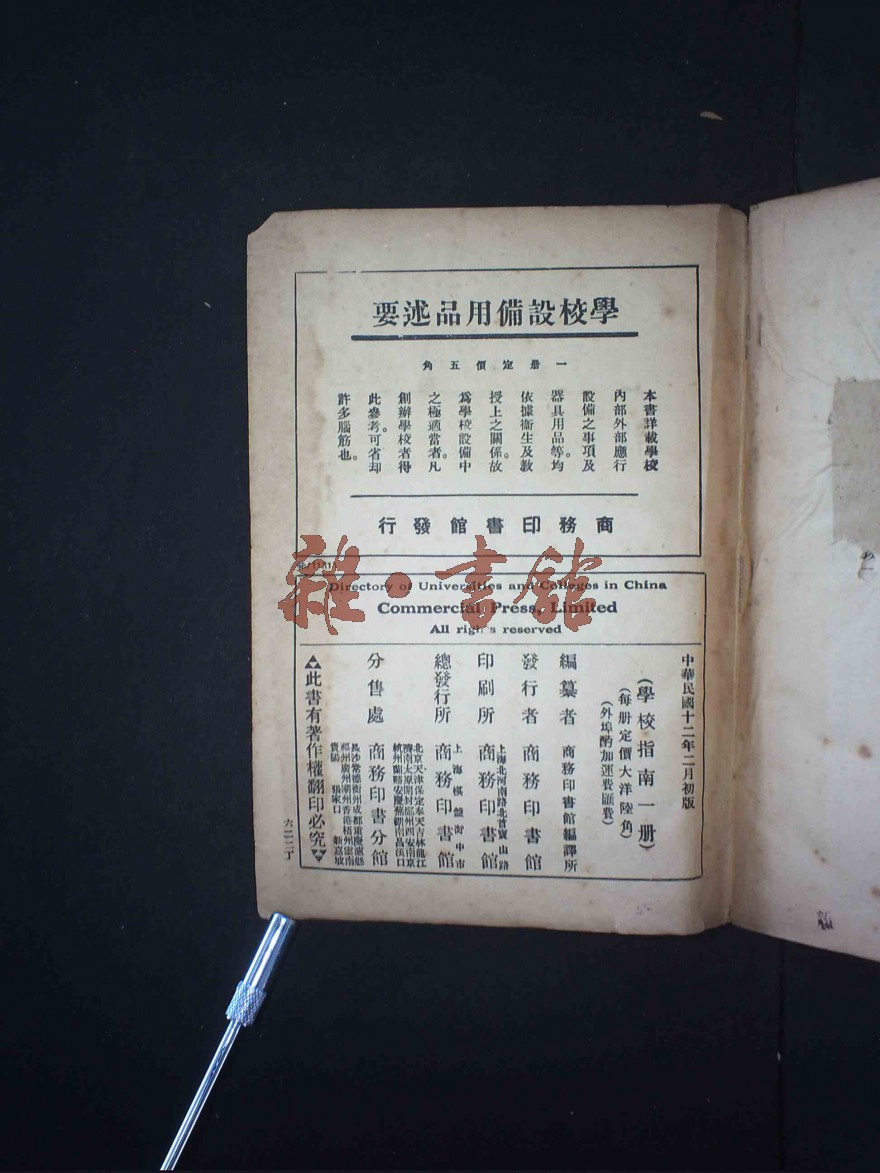 學校設備用品述要
一册定價五角
本書詳載學校
內部外部應行
設備之事項及
器具用品等。均
依據衞生及敎
授上之關係。故
爲學校設備中
之極適當者。凡
創辦學校者得
此參考。可省却
許多腦筋也。
商務印書館發行
Directory of Universities and Colleges in China
Commercial Press, Limited
All rights reserved
中華民國十二年二月初版
(學校指南一册)
(每册定價大洋陸角)
(外埠酌加運費匯費)
編纂者 商務印書館編譯所
發行者 商務印書館
印刷所 上海北河南路北首寶山路 商務印書館
總發行所 上海棋盤街中市 商務印書館
分售處 商務印書分館
北京天津保定奉天吉林龍江
濟南太原開封鄭州西安南京
杭州蘭谿安慶蕪湖南昌漢口
長沙常德衡州成都重慶瀘縣
福州廣州潮州香港梧州雲南
貴陽 張家口 新嘉坡
此書有著作權翻印必究
六二二丁
雜·書館